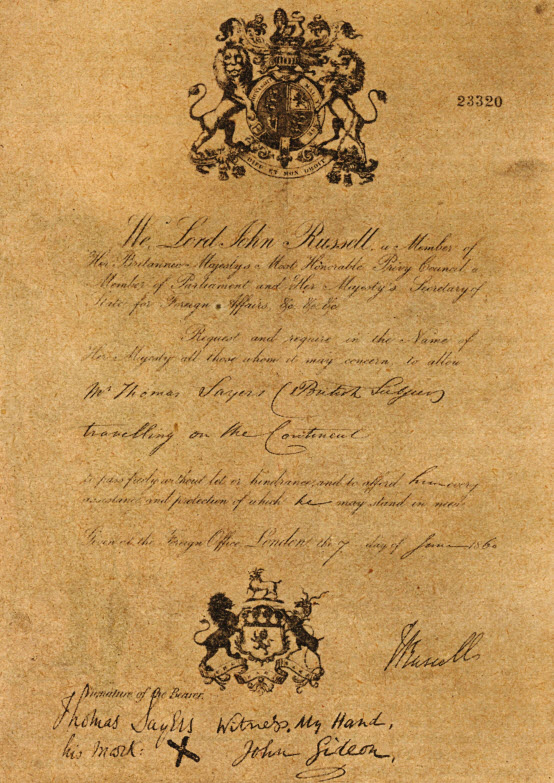 23320
DIEU ET MON DROIT
We, Lord John Russell, a Member of
Her Britannic Majesty's Most Honorable Privy Council, a
Member of Parliament and Her Majesty's Secretary of
State for Foreign Affairs, &c. &c. &c.
Request and require in the Name of
Her Majesty all those whom it may concern, to allow
Mr Thomas Sayers (British Subject)
travelling on the Continent
to pass freely without let, or hindrance, and to afford him every
assistance and protection of which he may stand in need.
Given at the Foreign Office, London, the 7 day of June 1860
JRussell
Signature of the Bearer.
Thomas Sayers Witness, My Hand,
his Mark: X John Gideon,